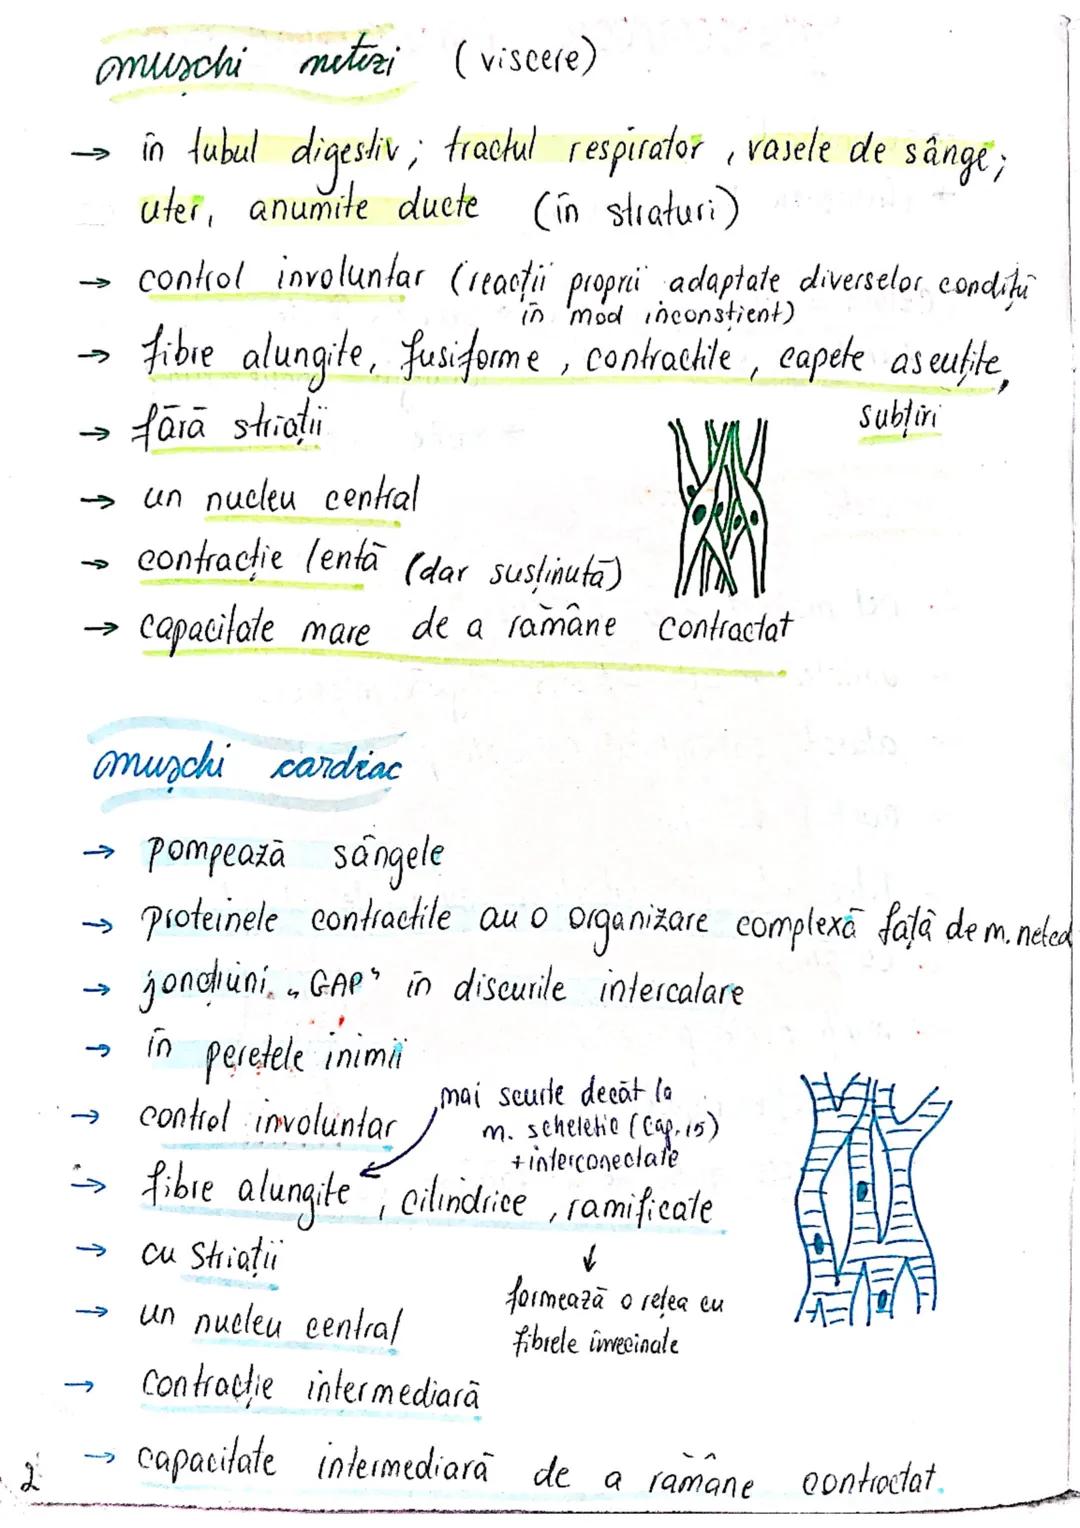 muschi netezi (viscere)
→ în tubul digestiv; tractul respirator, vasele de sânge;
uter, anumite ducte (în straturi)
→ control involuntar (reacții proprii adaptate diverselor condiții
în mod inconștient)
→ fibre alungite, fusiforme, contractile, capete ascuțite,
subțiri
→ fără striații
→ un nucleu central
→ contracție lentă (dar susținută)
→ capacitate mare de a rămâne contractat
mușchi cardiac
→ pompează sângele
→ proteinele contractile au o organizare complexă față de m. neted
→ joncțiuni „GAP” în discurile intercalare
→ în peretele inimii
→ control involuntar
mai scurte decât la
m. scheletic (cap. 15)
+ interconectate
→ fibre alungite, cilindrice, ramificate
→ cu striații
↓
formează o rețea cu
fibrele învecinate
→ un nucleu central
→ contracție intermediară
→ capacitate intermediară de a rămâne contractat.
2